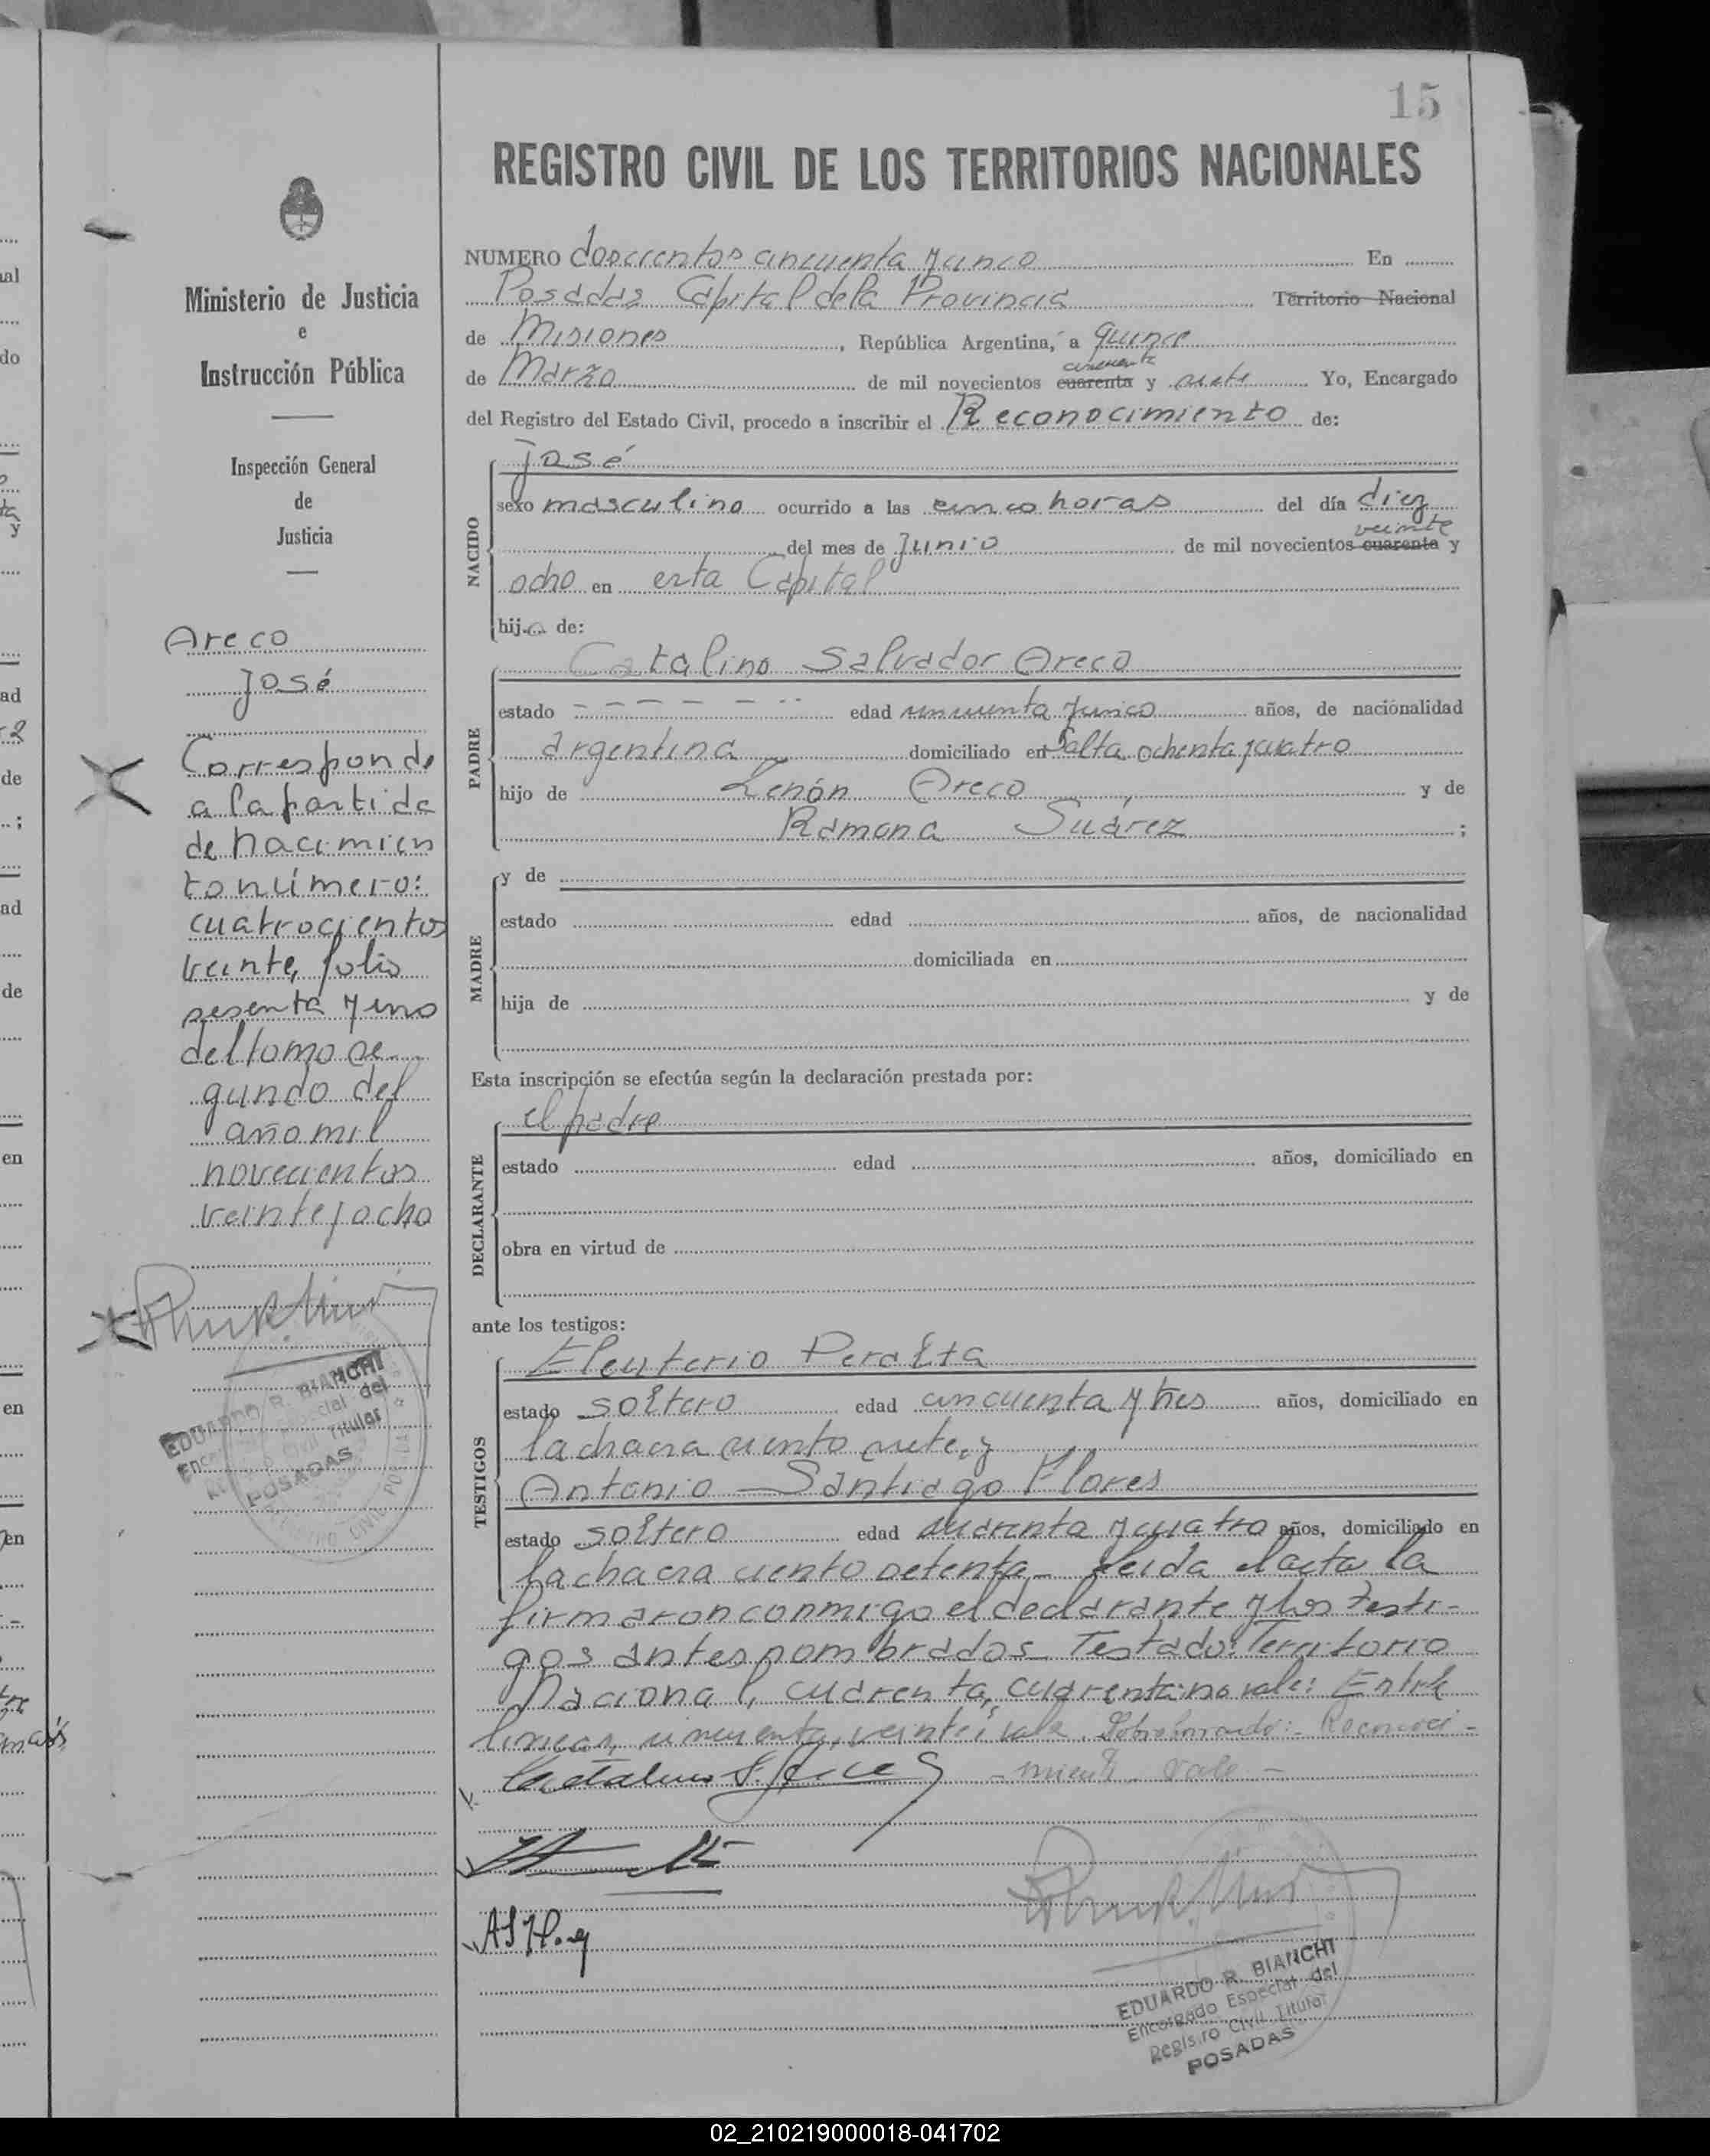 15
REGISTRO CIVIL DE LOS TERRITORIOS NACIONALES
Ministerio de Justicia
e
Instrucción Pública
Inspección General
de
Justicia
Areco
José
Corresponde
a la partida
de nacimien
to número:
cuatrocientos
veinte, folio
sesenta y uno
del tomo se-
gundo del
año mil
novecientos
veinte y ocho
EDUARDO R. BIANCHI
Encargado Especial del
Registro Civil Titular
POSADAS
NUMERO doscientos cincuenta y cinco En
Posadas Capital de la Provincia Territorio Nacional
de Misiones, República Argentina, a quince
cincuenta
de Marzo de mil novecientos cuarenta y siete Yo, Encargado
del Registro del Estado Civil, procedo a inscribir el Reconocimiento de:
NACIDO
José
sexo masculino ocurrido a las cinco horas del día diez
veinte
del mes de Junio de mil novecientos cuarenta y
ocho en esta Capital
hijo de:
PADRE
Catalino Salvador Areco
estado - - - - - - edad cincuenta y cinco años, de nacionalidad
argentina domiciliado en Salta ochenta y cuatro
hijo de Zenón Areco y de
Ramona Suárez ;
MADRE
y de
estado edad años, de nacionalidad
domiciliada en
hija de y de
Esta inscripción se efectúa según la declaración prestada por:
DECLARANTE
el padre
estado edad años, domiciliado en
obra en virtud de
ante los testigos:
TESTIGOS
Eleuterio Peralta
estado soltero edad cincuenta y tres años, domiciliado en
la chacra ciento siete, y
Antonio Santiago Flores
estado soltero edad cuarenta y cuatro años, domiciliado en
la chacra ciento setenta_ Leída el acta la
firmaron conmigo el declarante y los testi-
gos antes nombrados_ Testado: Territorio
Nacional, cuarenta, cuarenta: no vale: Entre
lineas, cincuenta, veinte: vale. Sobreborrado:- Reconoci-
-miento_ Vale -
Catalino S. Areco
EDUARDO R. BIANCHI
Encargado Especial del
Registro Civil Titular
POSADAS
02_210219000018-041702